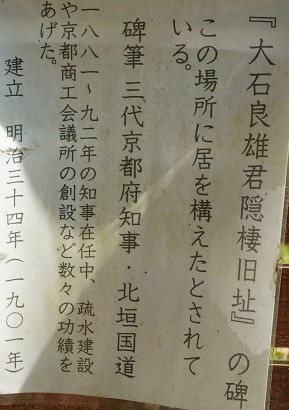 『大石良雄君隠棲旧址』の碑
この場所に居を構えたとされて
いる。
碑筆 三代京都府知事・北垣国道
一八八一～九二年の知事在任中、疏水建設
や京都商工会議所の創設など数々の功績を
あげた。
建立 明治三十四年(一九〇一年)